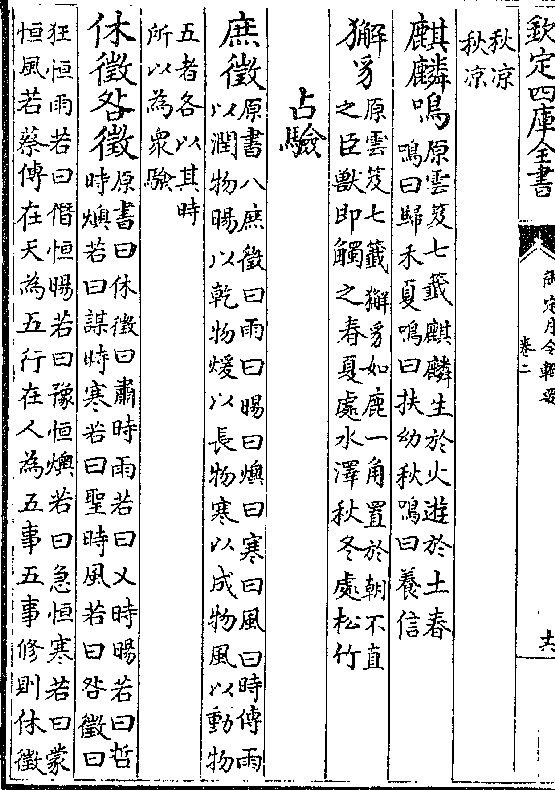 欽定四庫全書
御定月令輯要
卷二
六
秋凉
秋凉
麒麟鳴
原雲笈七籤麒麟生於火遊於土春
鳴曰歸禾夏鳴曰扶幼秋鳴曰養信
獬豸
原雲笈七籤獬豸如鹿一角置於朝不直
之臣獸即觸之春夏處水澤秋冬處松竹
占驗
庶徵
原書八庶徵曰雨曰暘曰燠曰寒曰風曰時傳雨
以潤物暘以乾物煖以長物寒以成物風以動物
五者各以其時
所以為衆驗
休徵咎徵
原書曰休徵曰肅時雨若曰乂時暘若曰哲
時燠若曰謀時寒若曰聖時風若曰咎徵曰
狂恒雨若曰僭恒暘若曰豫恒燠若曰急恒寒若曰蒙
恒風若蔡傳在天為五行在人為五事五事修則休徵